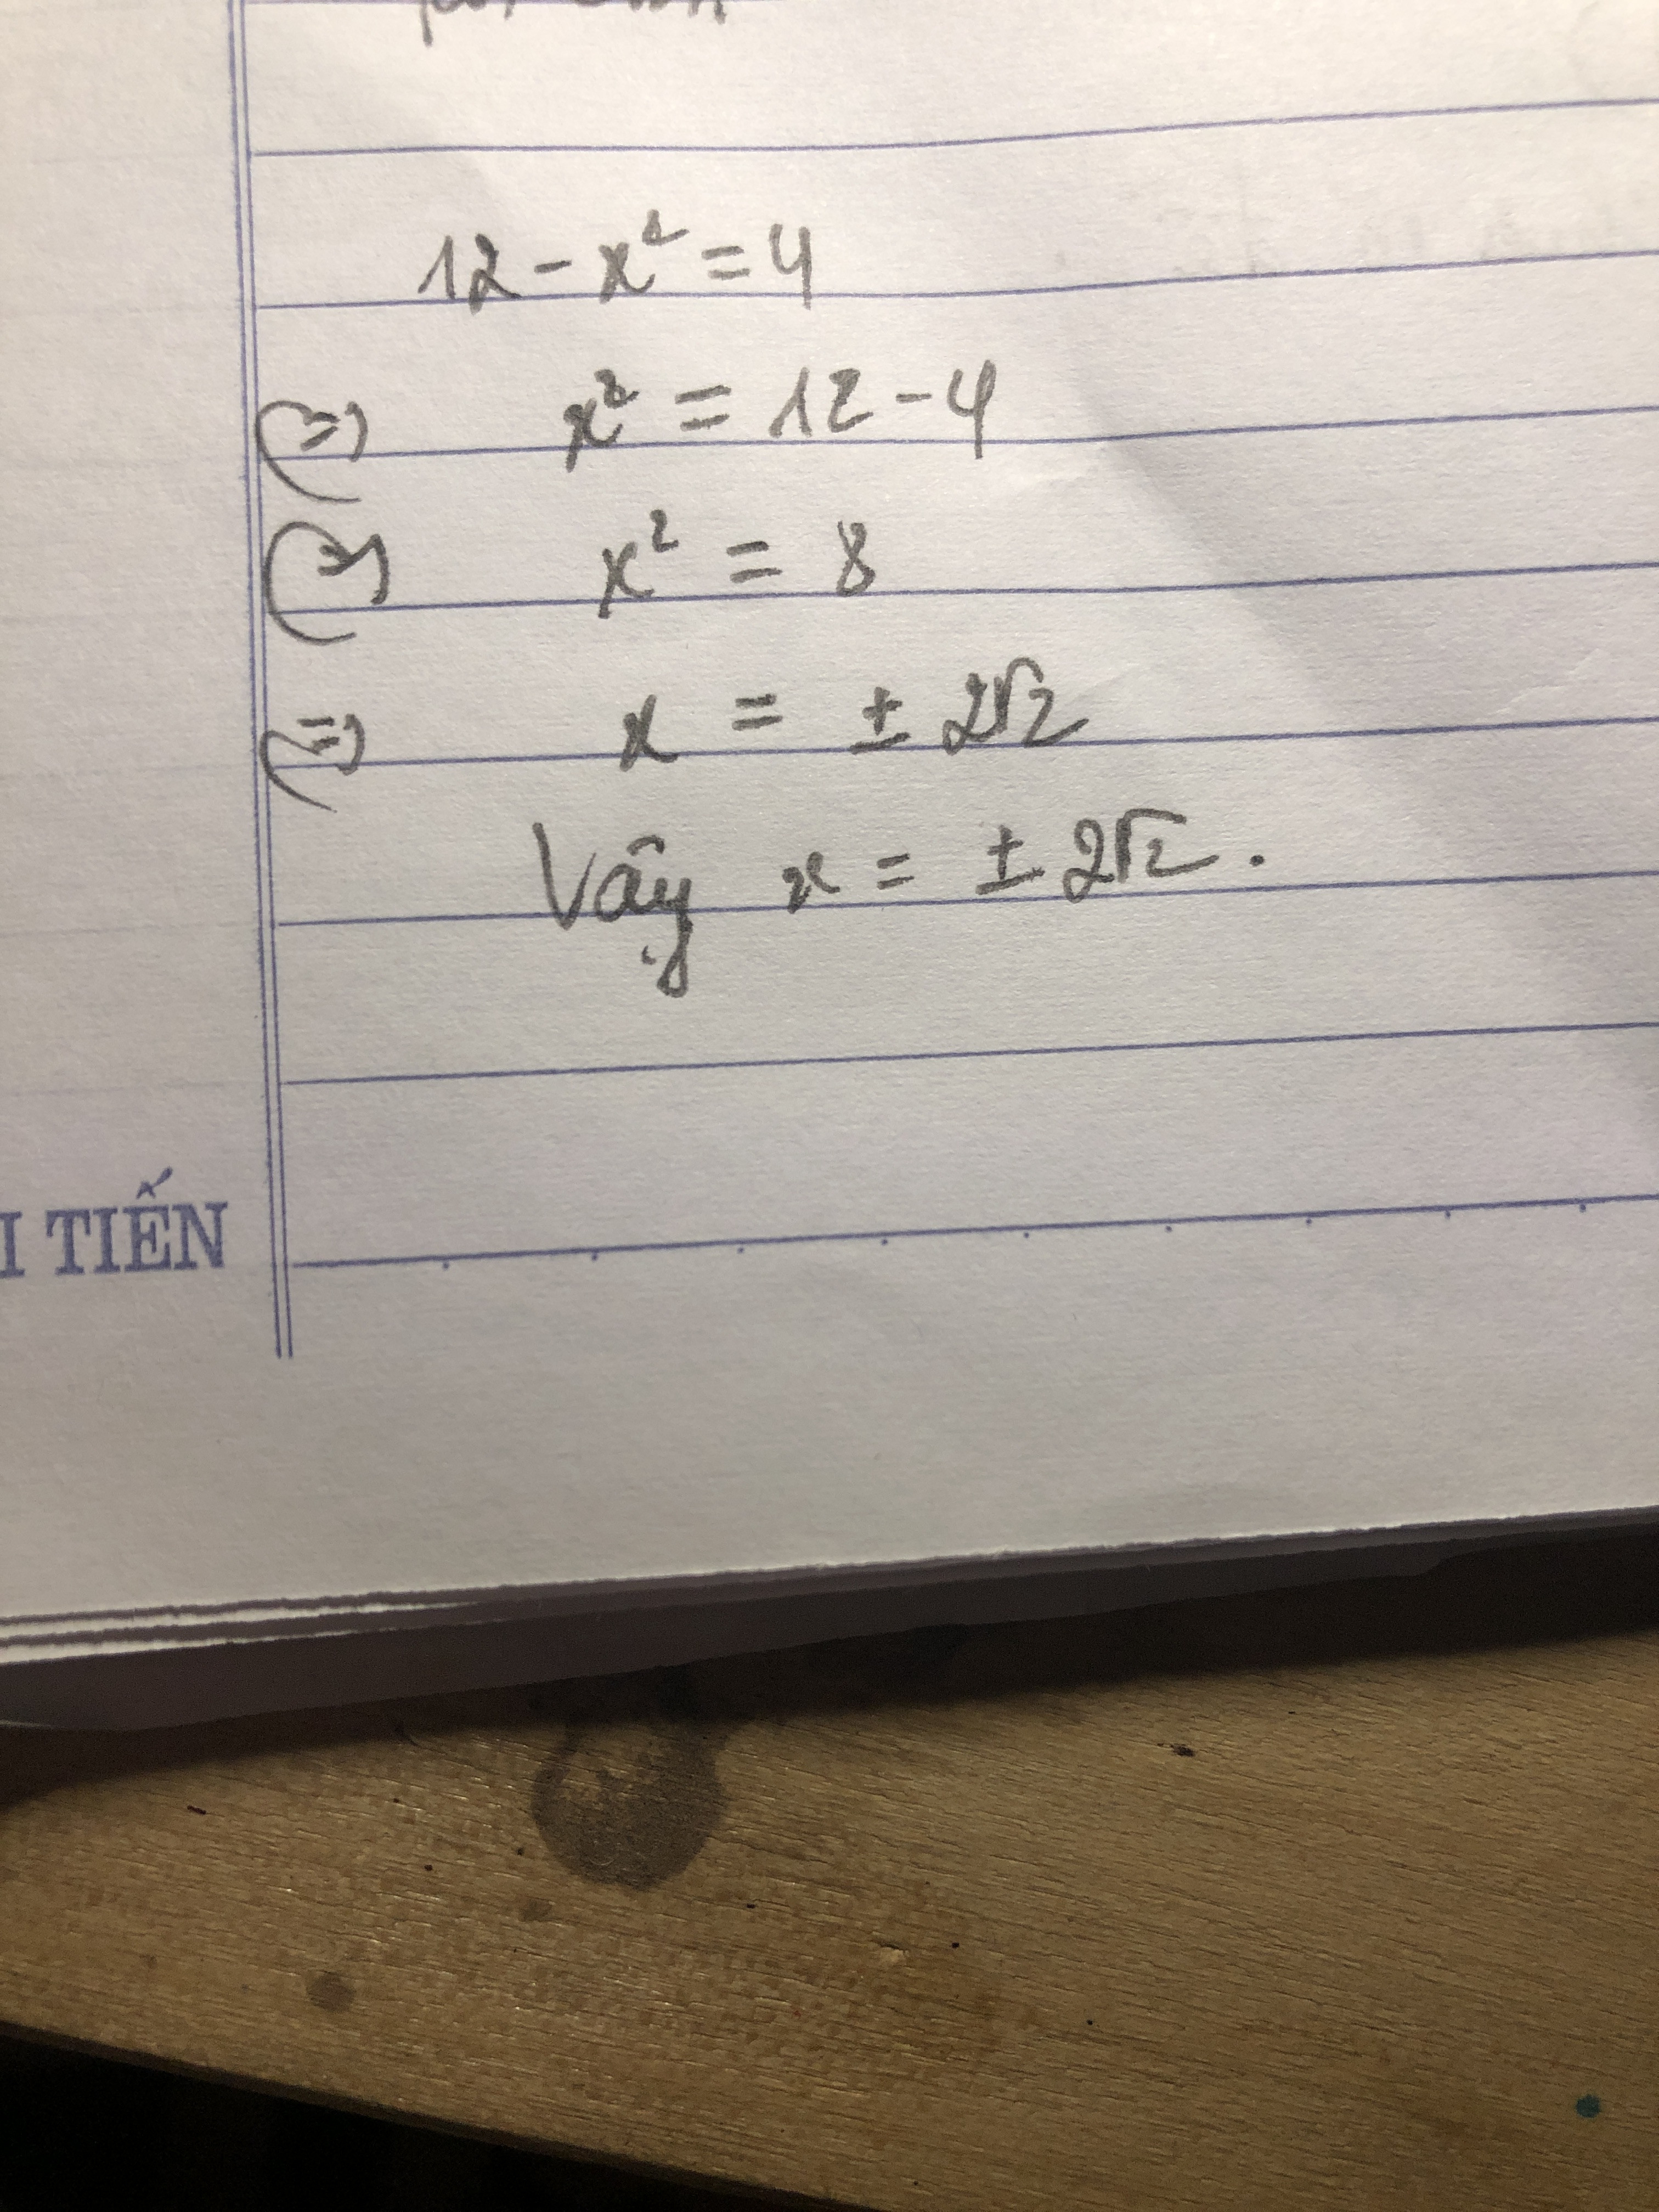 12 - x² = 4
(=) x² = 12 - 4
(=) x² = 8
(=) x = ± 2√2
Vậy x = ± 2√2.
I TIẾN